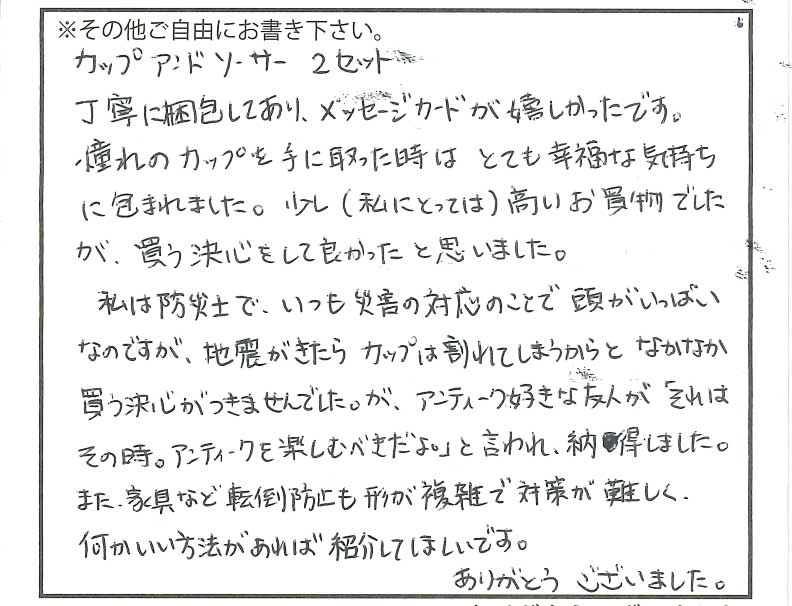 ※その他ご自由にお書き下さい。
カップアンドソーサー 2セット
丁寧に梱包してあり、メッセージカードが嬉しかったです。
憧れのカップを手に取った時は とても幸福な気持ち
に包まれました。少し(私にとっては)高いお買物でした
が、買う決心をして良かったと思いました。
私は防災士で、いつも災害の対応のことで頭がいっぱい
なのですが、地震がきたらカップは割れてしまうからと なかなか
買う決心がつきませんでした。が、アンティーク好きな友人が「それは
その時。アンティークを楽しむべきだよ。」と言われ、納得しました。
また、家具など転倒防止も形が複雑で対策が難しく、
何かいい方法があれば紹介してほしいです。
ありがとう ございました。